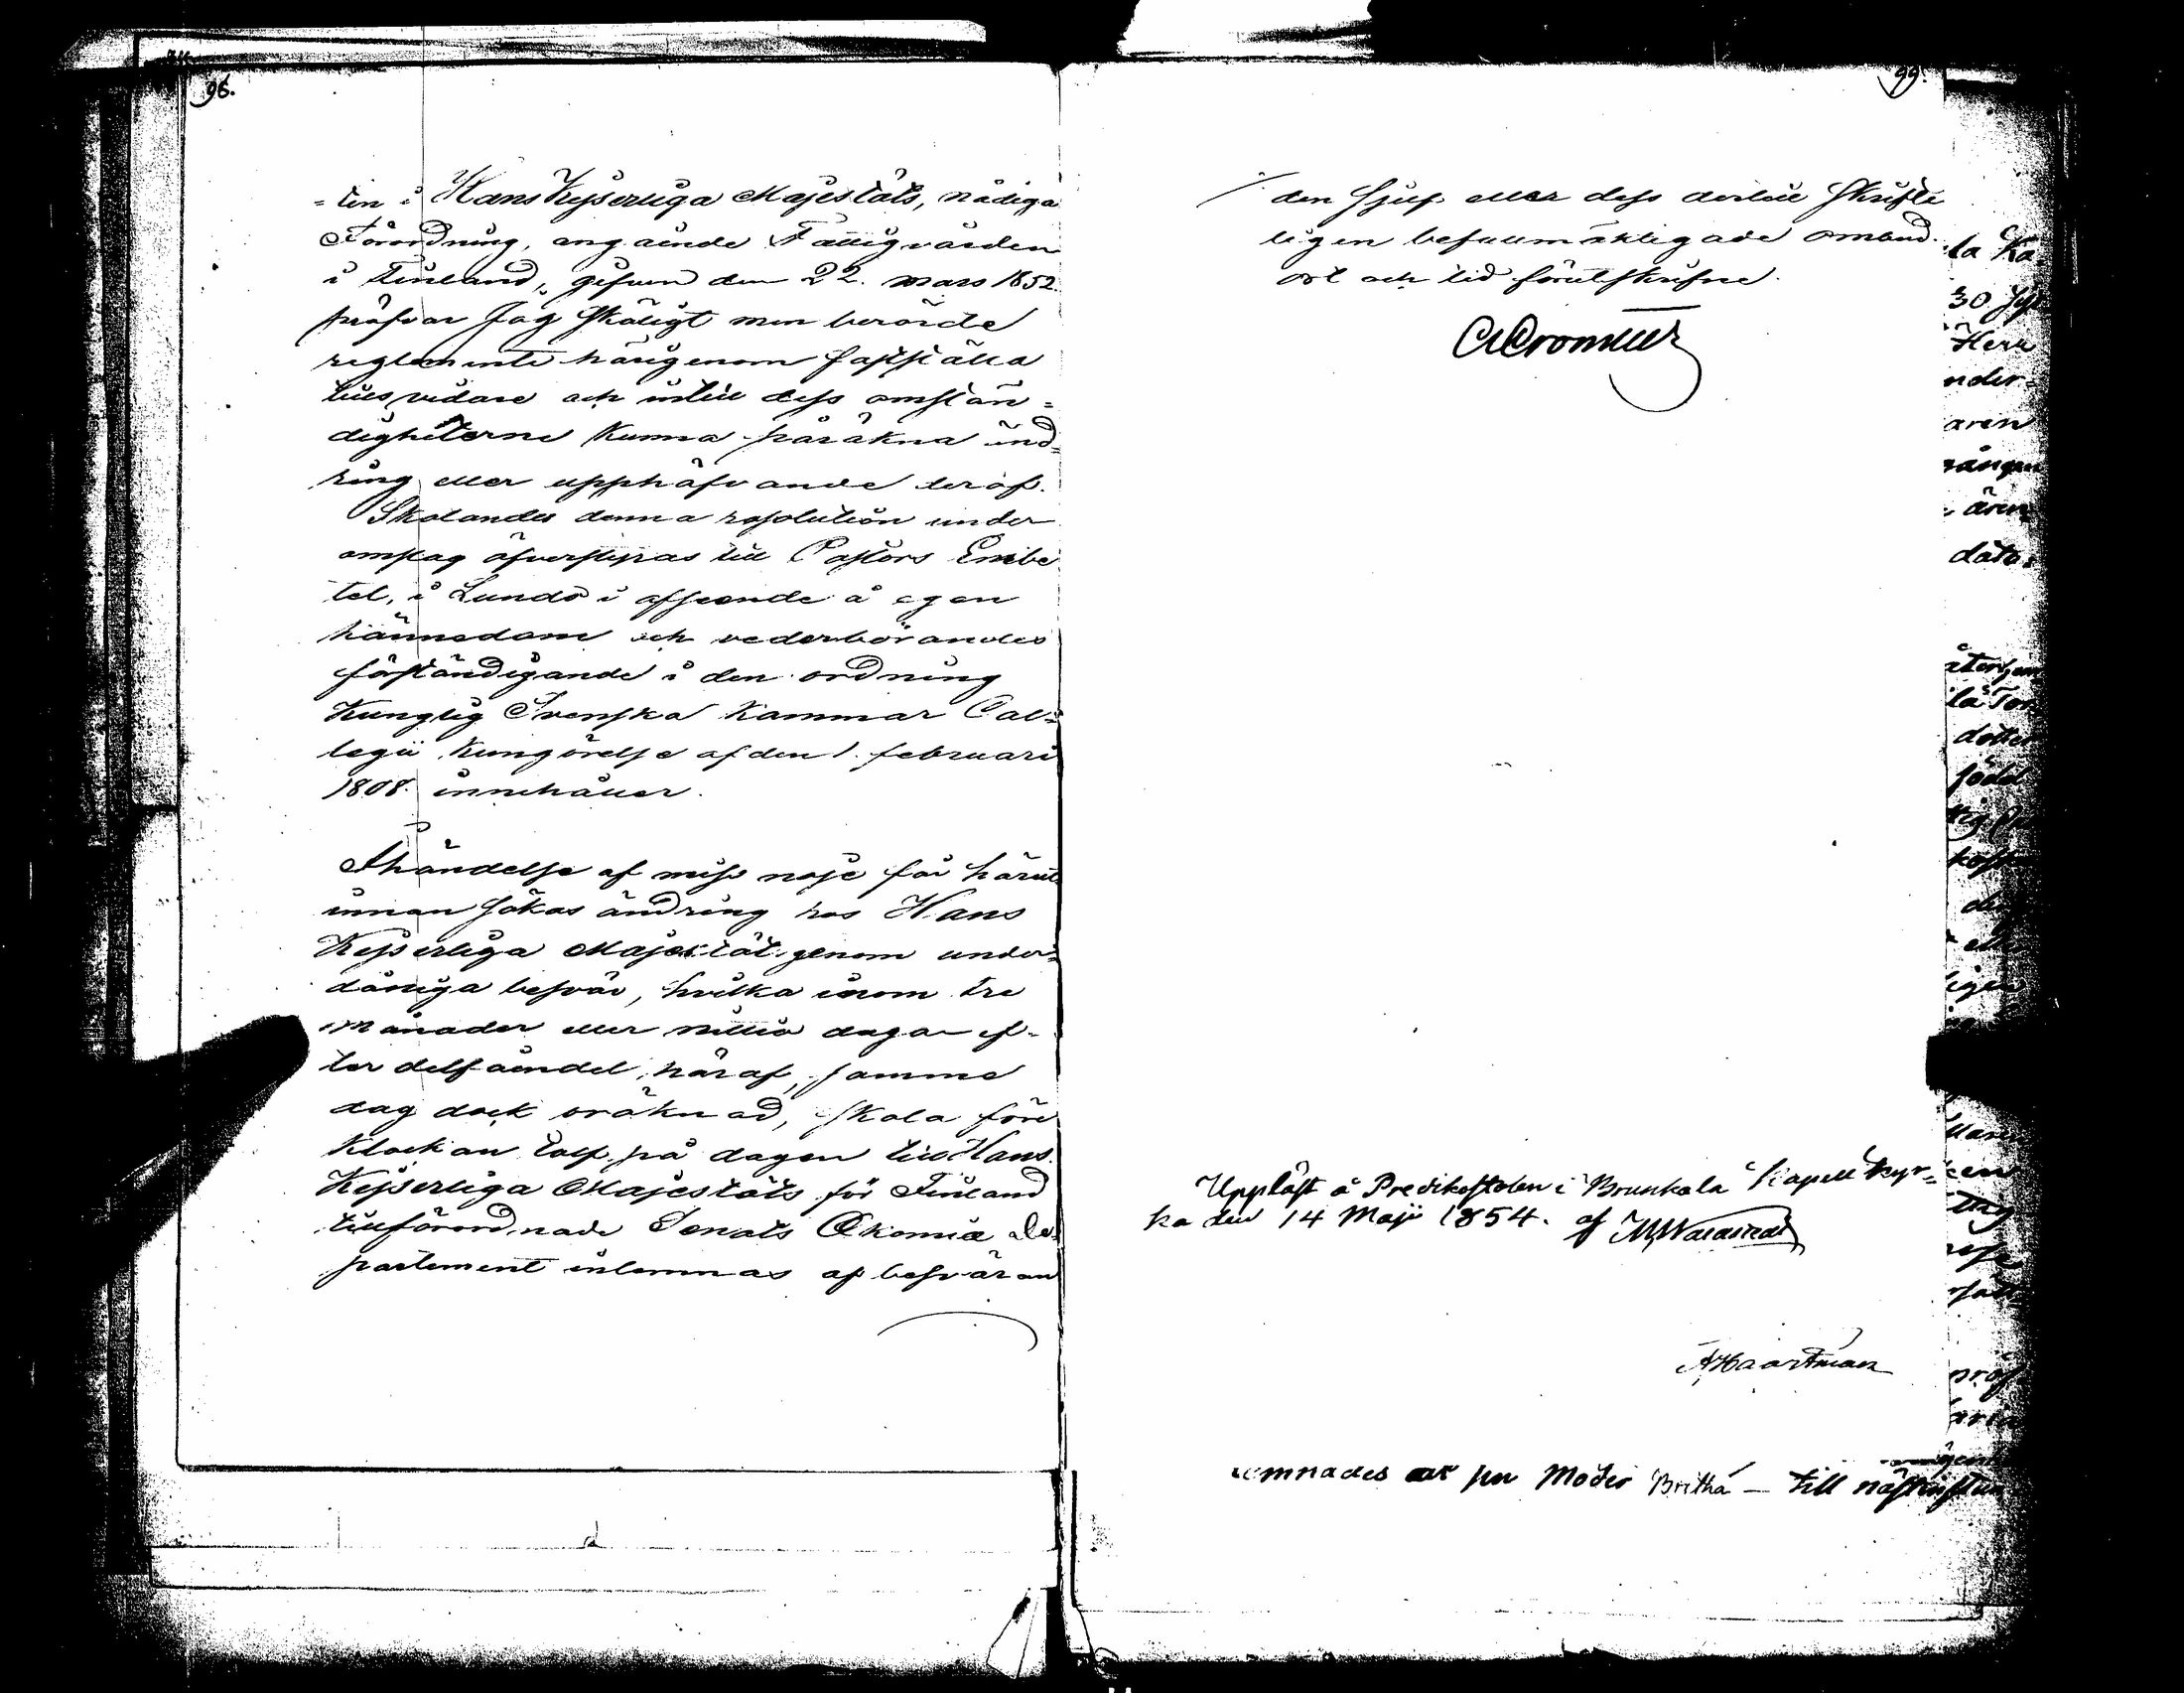 96.
=ten i Hans Kejserliga Majestäts, nådiga
Förordning, angående Fattigvården
i Finland, gifven den 22. mars 1852.
pröfvar Jag skäligt men berörde
reglemente härigenom fastställa
tills vidare och intill dess omstän=
digheterne kunna påräkna änd=
ring eller upphäfvande deraf.
Skolandes denna resolution under
omslag öfversändas till Pastors Embe
tet, i Lundo i afseende å egen
kännedom och vederbörandes
förständigande i den ordning
Kunglig Svenska Kammar Col=
legii Kungörelse af den 1. februari
1808. innehåller.
I händelse af miss nöje får härut
innan sökas ändring hos Hans
Kejserliga Majestät genom under=
dåniga besvär, hvilka inom tre
månader eller nittio dagar ef=
ter delfåendet häraf, samma
dag dock oräknad, skola före
Klockan tolf på dagen till Hans
Kejserliga Majestäts för Finland
tillförordnade Senats Œkonomiæ De=
partement inlemnas af besväran
99.
den sjelf eller dess dertill skrifte
ligen befullmäktigade ombud.
ort och tid förutskrifne.
Uppläst å Predikostolen i Brunkala Kapell kyr=
ka den 14 Maji 1854. af
AHaartman
emnades per Moder Britha — till
la Ka
30
Herr
nder=
aren
dato
dotter
född